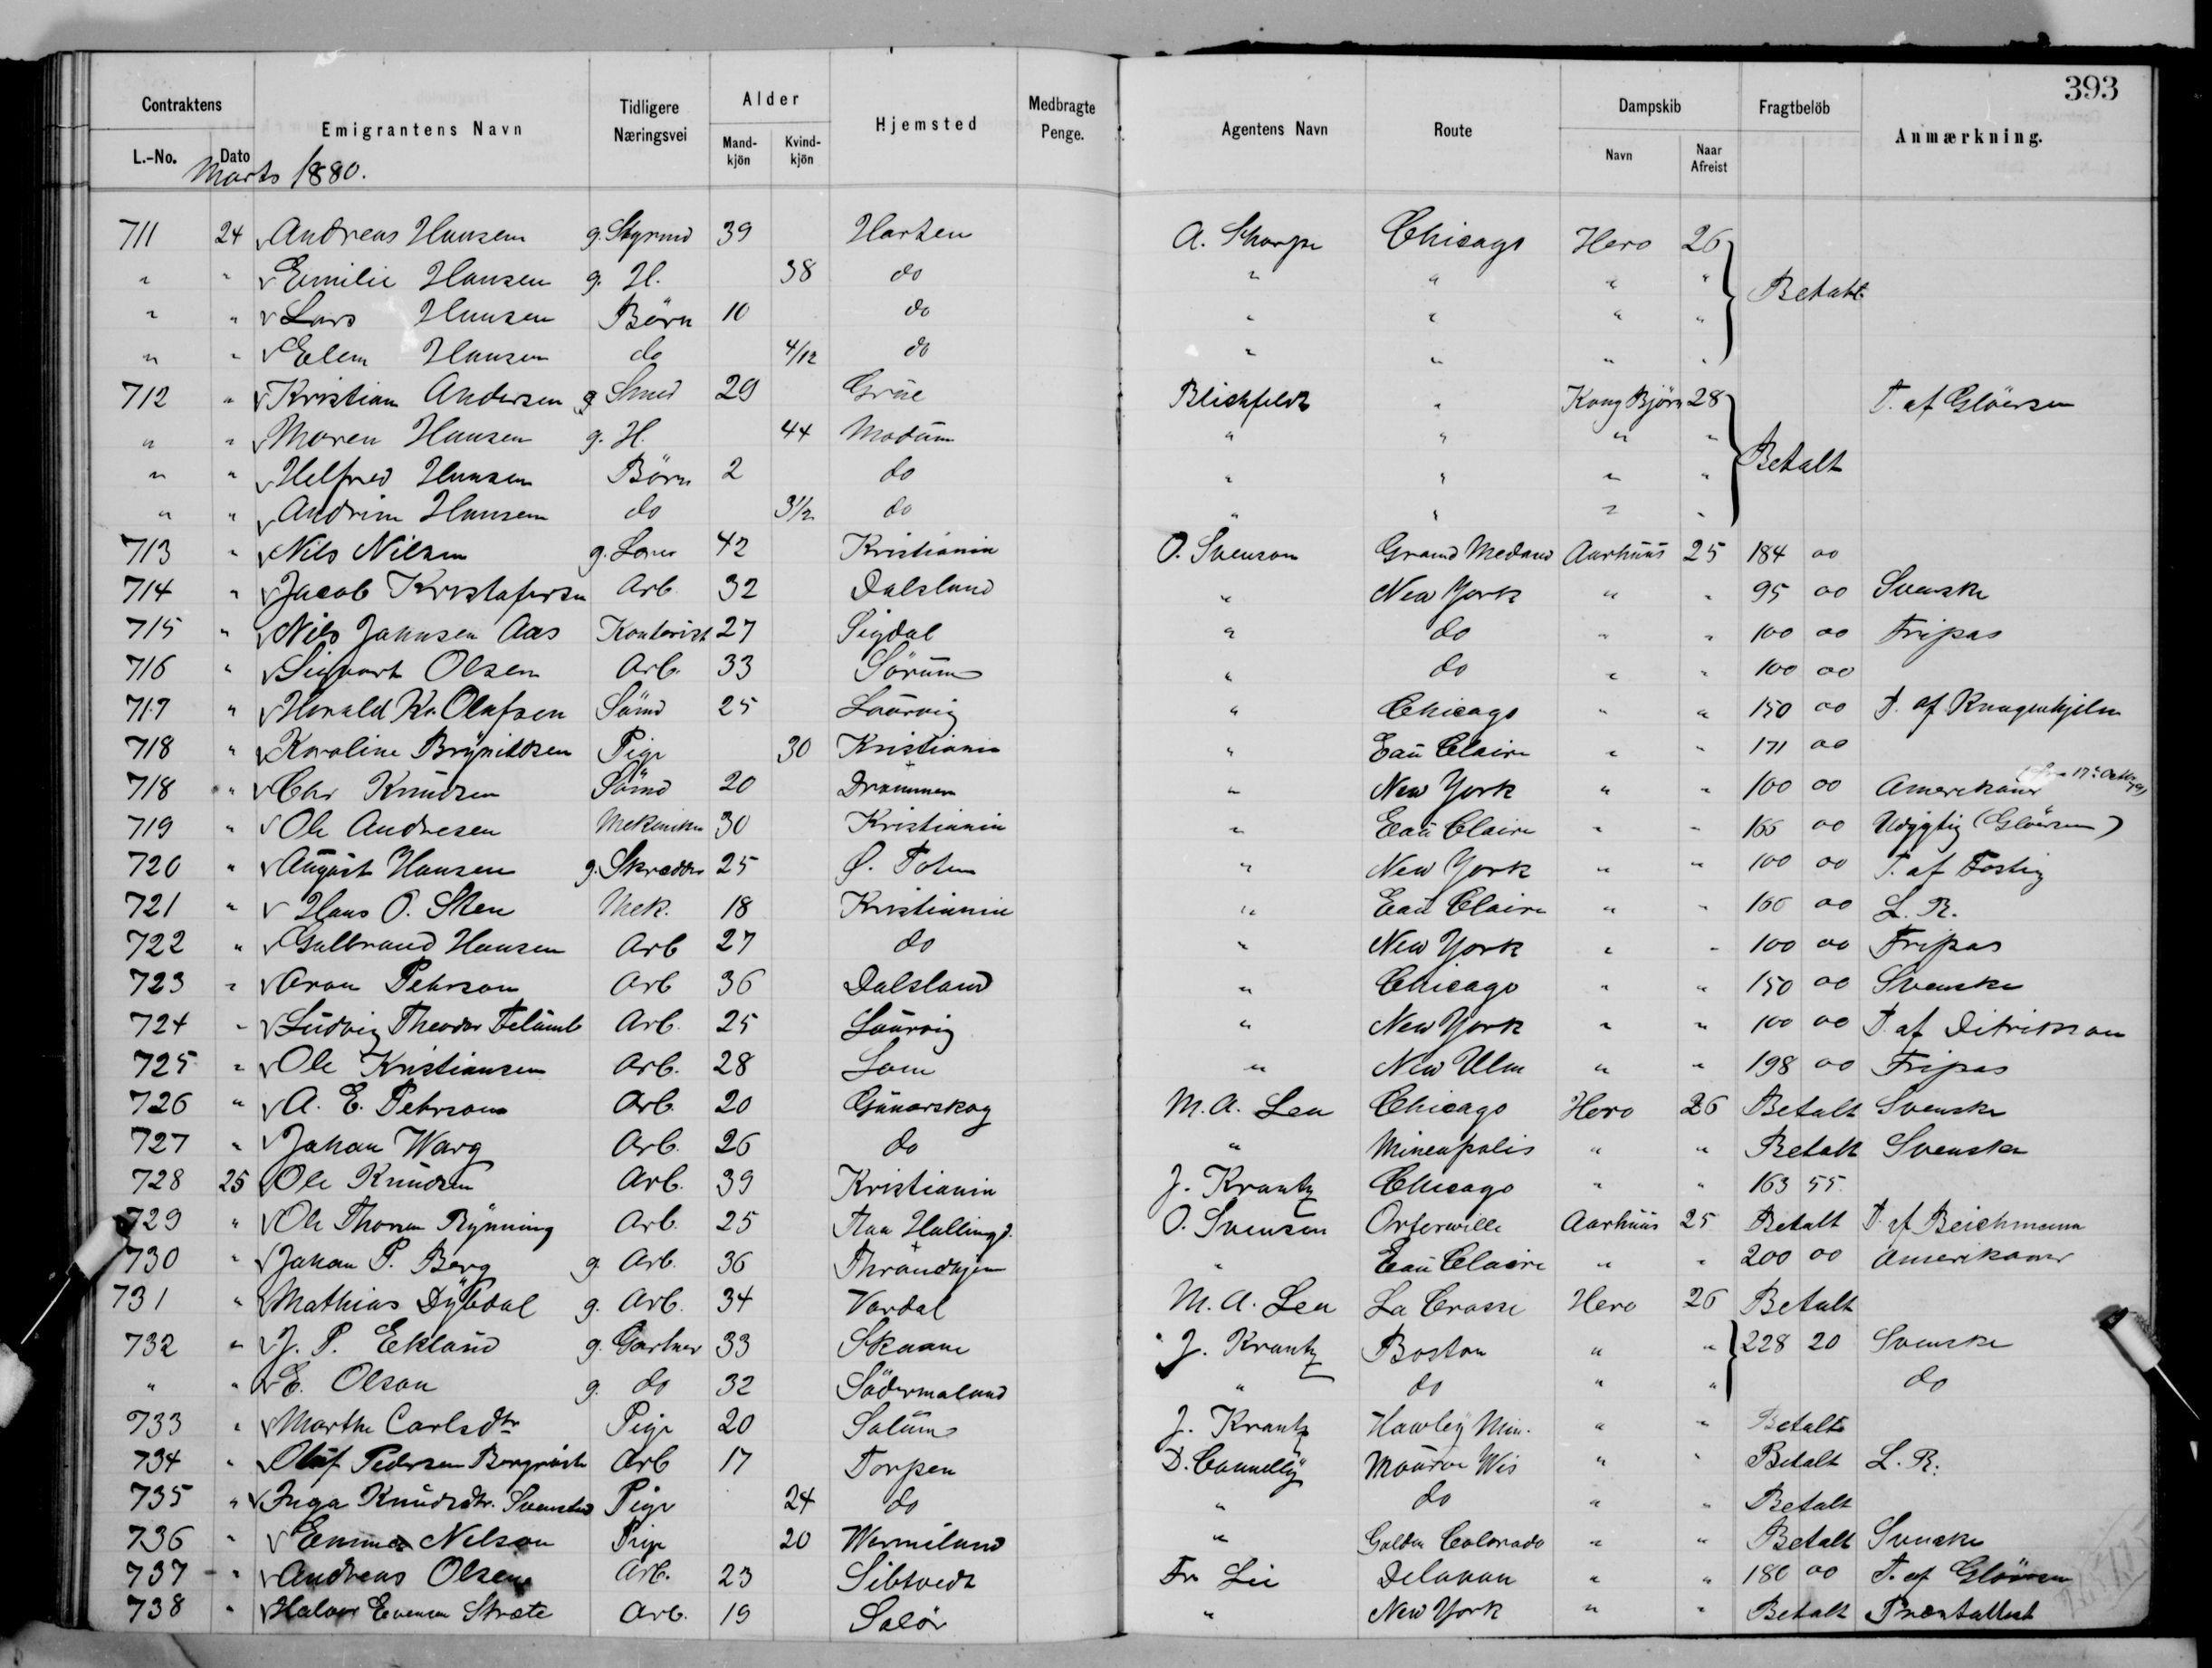 393
Contraktens Emigrantens Navn Tidligere Næringsvei Alder Hjemsted Medbragte Penge. Agentens Navn Route Dampskib Fragtbelöb Anmærkning.
L.-No. Dato Mandkjön Kvindkjön Navn Naar Afreist
Marts 1880.
711 24 Andreas Hansen g. Styrmd 39 Harten A. Sharpe Chicago Hero 26
" " Emilie Hansen g. H. 38 do " " " " Betalt
" " Lars Hansen Börn 10 do " " " "
" " Elen Hansen do 4/12 do " " " "
712 " Kristian Andersen g Smed 29 Grüe Blichfeldt " Kong Björn 28 T. af Glöersen
" " Maren Hansen g. H. 44 Modum " " " " Betalt
" " Helfred Hansen Börn 2 do " " " "
" " Andrine Hansen do 3/12 do " " " "
713 " Nils Nilsen g. 42 Kristiania O. Svenson Grand Medand Aarhuus 25 184 00
714 " Jacob Kristafersen Arb. 32 Dalsland " New York " " 95 00 Svenske
715 " Nils Jahnsen Aas Kontorist 27 Sigdal " do " " 100 00 Fripas
716 " Sigvart Olsen Arb. 33 Sörum " do " " 100 00
717 " Harald Kr. Olafsen Sömd 25 Laurvig " Chicago " " 150 00 T. af Knagenhjelm
718 " Karoline Brynildsen Pige 30 Kristiania " Eau Claire " " 171 00
718 " Chr Knudsen Sömd 20 Drammen " New York " " 100 00 Amerikaner
719 " Ole Andresen Mekaniker 30 Kristiania " Eau Claire " " 166 00 Udygtig (Glöersen)
720 " August Hansen g. Skrædder 25 Ø. Toten " New York " " 100 00 T. af Fostig
721 " Hans O. Sten Mek. 18 Kristiania " Eau Claire " " 166 00 L. R.
722 " Gulbrand Hansen Arb 27 do " New York " " 100 00 Fripas
723 " Aron Pehrson Arb 36 Dalsland " Chicago " " 150 00 Svenske
724 " Ludvig Theodor Arb. 25 Laurvig " New York " " 100 00 T. af Ditrikson
725 " Ole Kristiansen Arb. 28 Lom " New Ulm " " 198 00 Fripas
726 " A. E. Pehrson Arb. 20 Gunarskog M. A. Lea Chicago Hero 26 Betalt Svenske
727 " Johan Warg Arb. 26 do " Mineapolis " " Betalt Svenske
728 25 Ole Knudsen Arb. 39 Kristiania J. Krantz Chicago " " 163 55
729 " Ole Thorsen Rynning Arb. 25 Aaa Hallingd. O. Svensen Orterville Aarhuus 25 Betalt T. af Beichmann
730 " Johan P. Berg g. Arb. 36 Throndhjem " Eau Claire " " 200 00 Amerikaner
731 " Mathias Dybdal g. Arb. 34 Vardal M. A. Lea La Crosse Hero 26 Betalt
732 " J. P. Eklund g. Gartner 33 Skaane J. Krantz Boston " " 228 20 Svenske
" " E. Olson g. do 32 Södermaland " do " " do
733 " Marthe Carlsdtr Pige 20 Solum J. Krantz Hawley Min. " " Betalt
734 " Oluf Pedersen Arb 17 Torpen D. Connelly Wis " " Betalt L. R.
735 " Inga Knudsdtr. Pige 24 do " do " " Betalt
736 " Emma Nelson Pige 20 Wermeland " Golden Colorado " " Betalt Svenske
737 " Andreas Olsen Arb. 23 Sibtvedt Fr Lie Delavan " " 180 00 T. af Glöersen
738 " Halvor Evensen Stræte Arb. 19 Solör " New York " " Betalt Præstattest